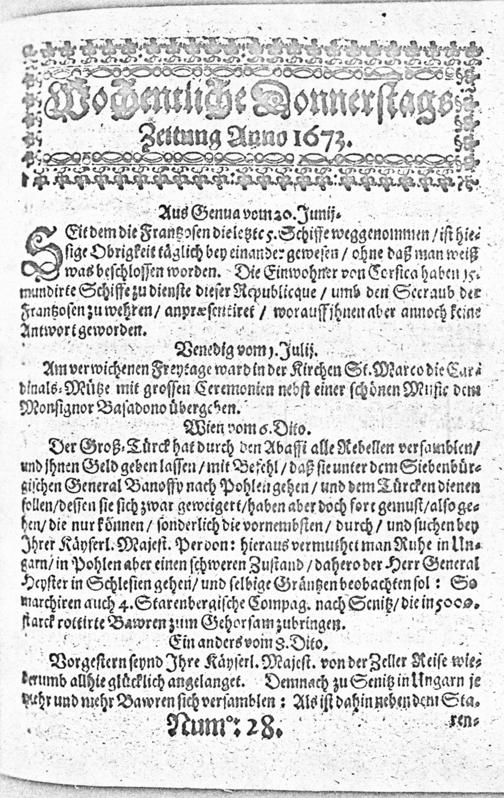 Wochentliche Donnerstags
Zeitung Anno 1673.
Aus Genua vom 20. Junij.
SEit dem die Frantzosen die letzte 5. Schiffe weggenommen / ist hie-
sige Obrigkeit täglich bey einander gewesen / ohne daß man weiß
was beschlossen worden. Die Einwohner von Corsica haben 15.
mundirte Schiffe zu dienste dieser Republicque / umb den Seeraub der
Frantzosen zu wehren / anpræsentiret / worauff ihnen aber annoch keine
Antwort geworden.
Venedig vom 1. Julij.
Am verwichenen Freytage ward in der Kirchen St. Marco die Car-
dinals-Mütze mit grossen Ceremonien nebst einer schönen Music dem
Monsignor Basadono übergeben.
Wien vom 6. Dito.
Der Groß-Türck hat durch den Abaffi alle Rebellen versamblen/
und ihnen Geld geben lassen / mit Befehl / daß sie unter dem Siebenbür-
gischen General Banoffy nach Pohlen gehen / und dem Türcken dienen
sollen/dessen sie sich zwar geweigert/haben aber doch fort gemust/also ge-
hen/ die nur können / sonderlich die vornembsten / durch / und suchen bey
Ihrer Käyserl. Majest. Perdon: hieraus vermuthet man Ruhe in Un-
garn/ in Pohlen aber einen schweren Zustand / dahero der Herr General
Heyster in Schlesien gehen/ und selbige Gräntzen beobachten sol: So
marchiren auch 4. Starenbergische Compag. nach Senitz/ die in 5000.
starck rottirte Bawren zum Gehorsam zubringen.
Ein anders vom 8. Dito.
Vorgestern seynd Ihre Käyserl. Majest. von der Zeller Reise wie-
derumb allhie glücklich angelanget. Demnach zu Senitz in Ungarn je
mehr und mehr Bawren sich versamblen: Als ist dahin neben dem Sta-
ren-
Num°: 28.